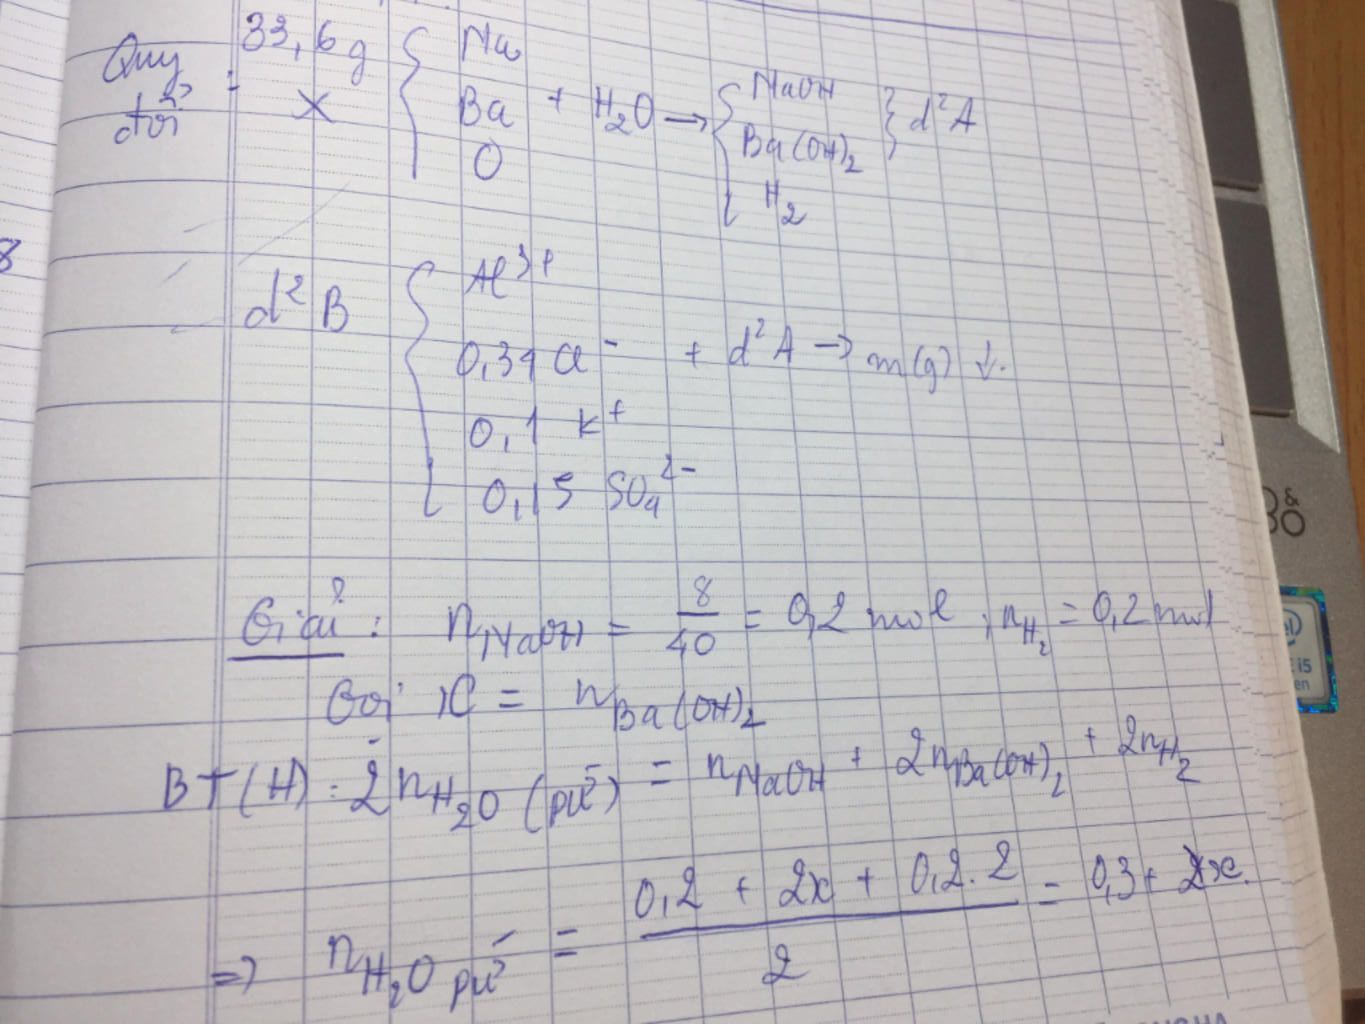 Quy đổi : 33,6g X { Na Ba O + H2O → { NaOH Ba(OH)2 } d² A
H2
8
d² B { Al3+
0,34 Cl- + d² A → m(g) ↓.
0,1 K+
0,15 SO4 2-
Giải : nNaOH = 8/40 = 0,2 mol ; nH2 = 0,2 mol
Gọi x = nBa(OH)2
BT(H) : 2nH2O (pứ) = nNaOH + 2nBa(OH)2 + 2nH2
=> nH2O pứ = (0,2 + 2x + 0,2.2)/2 = 0,3 + x.